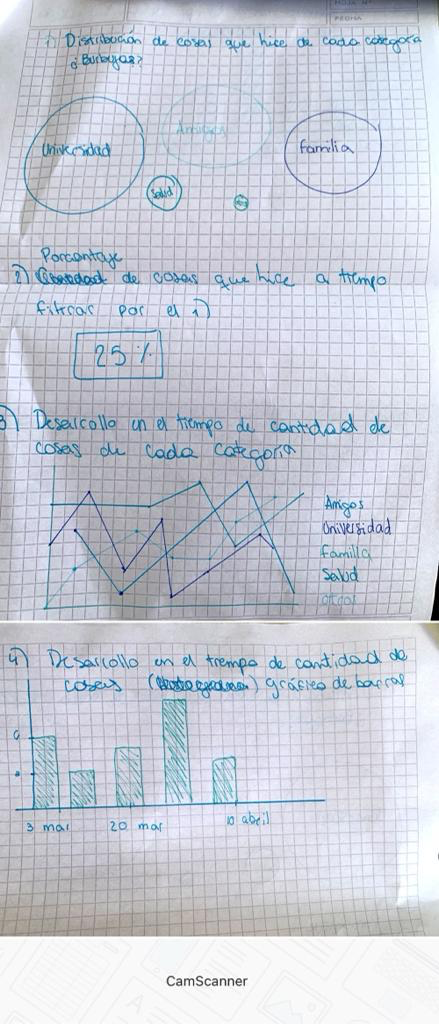 HOJA N°
FECHA
1) Distribución de cosas que hice de cada categoría
¿Burbujas?
Universidad
Amigos
Familia
Salud
2) Porcentaje de cosas que hice a tiempo
filtrar por el 1)
25 %
3) Desarrollo en el tiempo de cantidad de
cosas de cada categoría
Amigos
Universidad
Familia
Salud
otros
4) Desarrollo en el tiempo de cantidad de
cosas gráfico de barras
3 mar 20 mar 10 abril
CamScanner